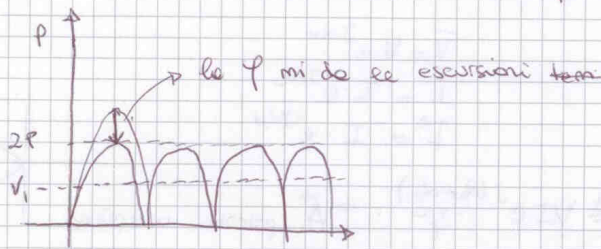 P
la φ mi da le escursioni
2P
V₁